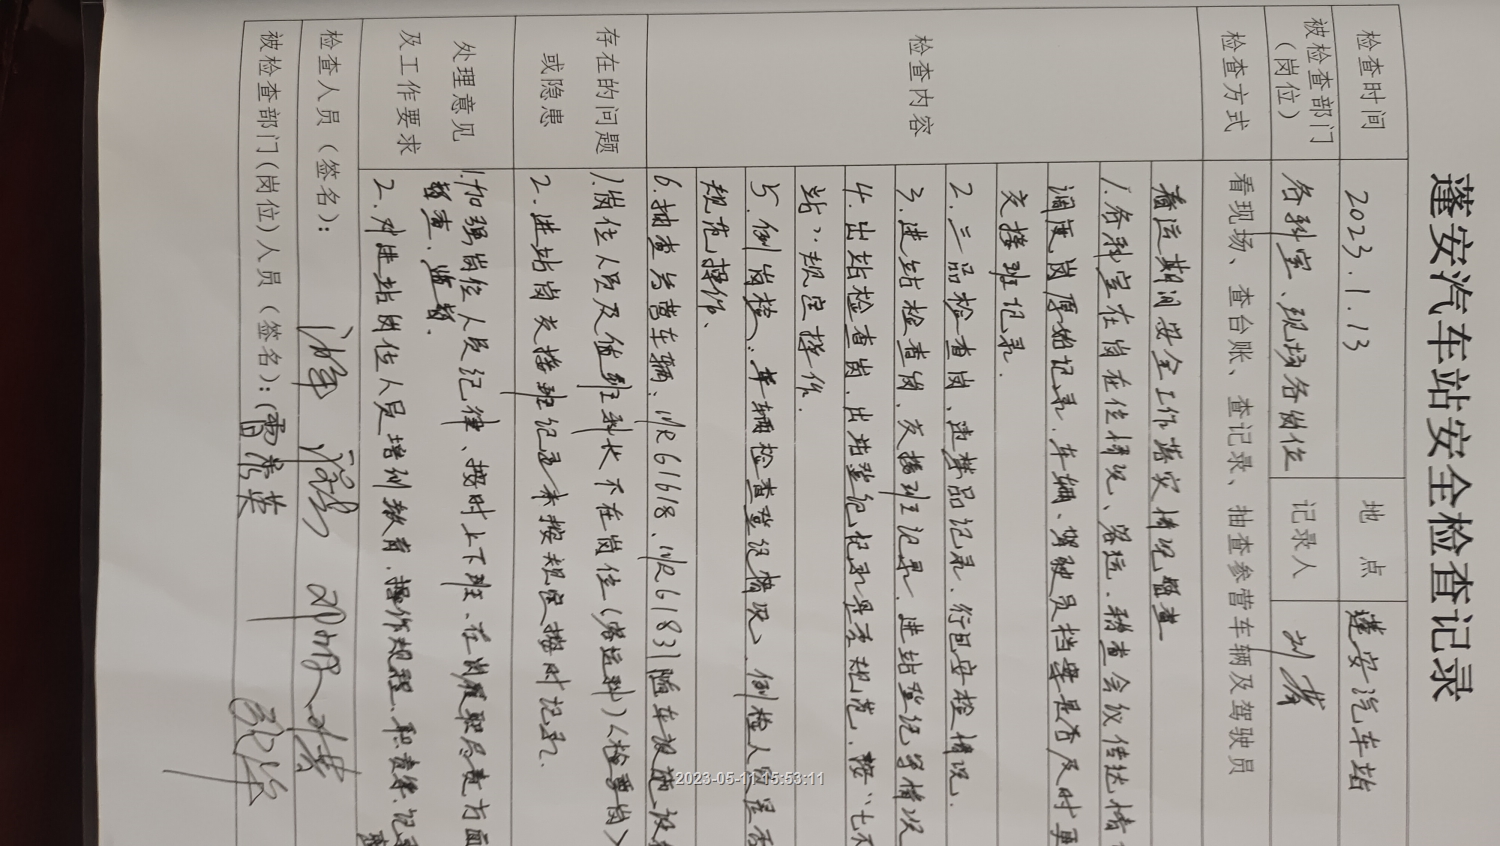 蓬安汽车站安全检查记录
检查时间 2023.1.13 地 点 蓬安汽车站
被检查部门（岗位） 各科室、现场各岗位 记录人 刘
检查方式 看现场、查台账、查记录、抽查参营车辆及驾驶员
检查内容
春运期间安全工作落实情况监查
1.各科室在岗在位情况、客运、稽查会议传达情
调度岗原始记录.车辆、驾驶员档案是否及时更
交接班记录.
2.三品检查岗.违禁品记录.行包安检情况.
3.进站检查岗.交接班记录.进站登记写情况
4.出站检查岗.出站登记记录是否规范、按"七不
站"规定操作.
5.例岗检:车辆检查登记情况、例检人员是否
规范操作、
6.抽查参营车辆:川R61618、川R61831随车设施设
存在的问题
或隐患
1.岗位人员及值班科长不在岗位(客运科)(检票岗)
2.进站岗交接班记录未按规定按时记录.
处理意见
及工作要求
1.加强岗位人员纪律、按时上下班、在岗履职尽责方面
督查、监督.
2.对进站岗位人员培训教育.操作规程、职责等.记录
检查人员（签名）：
被检查部门(岗位)人员（签名）：
2023-05-11 15:53:11